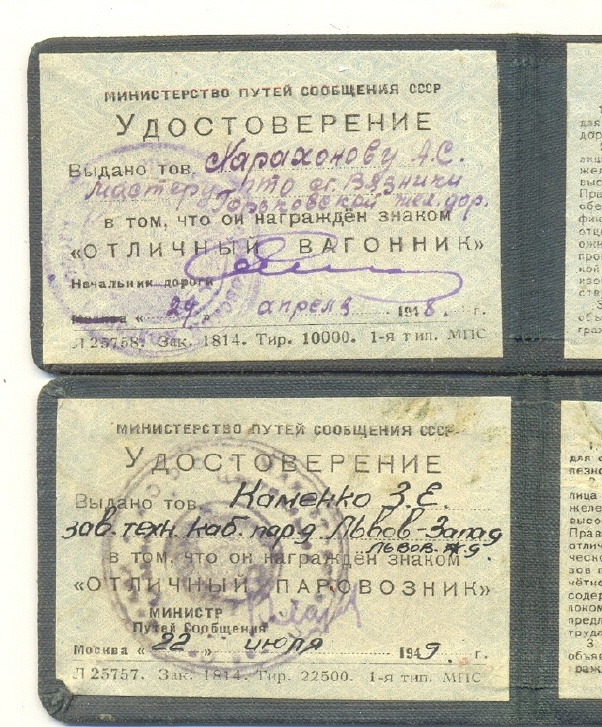 МИНИСТЕРСТВО ПУТЕЙ СООБЩЕНИЯ СССР
УДОСТОВЕРЕНИЕ
Выдано тов. Парахонову А.С.
мастеру ПТО ст. Вязники
Горьковской жел. дор.
в том, что он награждён знаком
«ОТЛИЧНЫЙ ВАГОННИК»
Начальник дороги
Москва « 29 » апреля 1948. г.
Л 25758. Зак. 1814. Тир. 10000. 1-я тип. МПС
МИНИСТЕРСТВО ПУТЕЙ СООБЩЕНИЯ СССР
УДОСТОВЕРЕНИЕ
Выдано тов. Каменко З.Е.
зав. техн. каб. пар.д. Львов-Запад
Львов. ж.д.
в том, что он награждён знаком
«ОТЛИЧНЫЙ ПАРОВОЗНИК»
МИНИСТР
Путей Сообщения
Москва « 22 » июля 1949. г.
Л 25757. Зак. 1814. Тир. 22500. 1-я тип. МПС